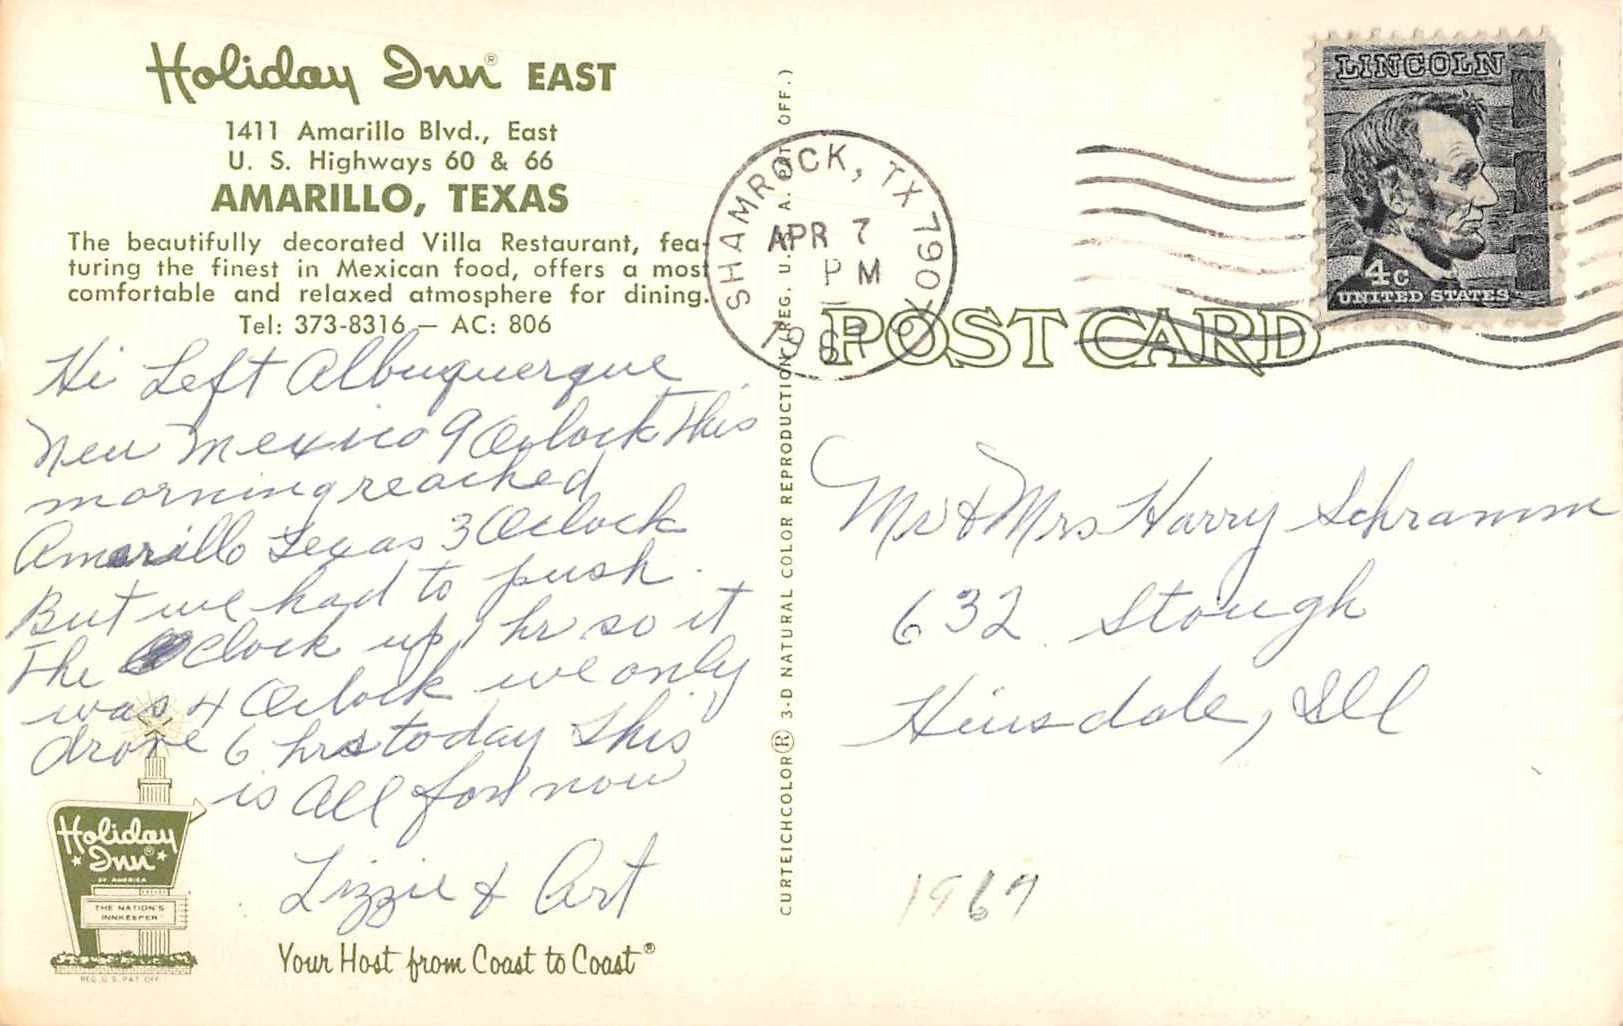 Holiday Inn® EAST
1411 Amarillo Blvd., East
U. S. Highways 60 & 66
AMARILLO, TEXAS
The beautifully decorated Villa Restaurant, fea-
turing the finest in Mexican food, offers a most
comfortable and relaxed atmosphere for dining.
Tel: 373-8316 — AC: 806
Hi Left Albuquerque
New Mexico 9 Oclock this
morning reached
Amarillo Texas 3 Oclock
But we had to push
the Clock up 1 hr so it
was 4 Oclock we only
drove 6 hrs today this
is All for now
Lizzie & Art
Holiday
Inn®
OF AMERICA
THE NATION'S
INNKEEPER
REG. U.S. PAT. OFF.
Your Host from Coast to Coast®
CURTEICHCOLOR® 3-D NATURAL COLOR REPRODUCTION (REG. U.S.A. PAT. OFF.)
SHAMROCK, TX 79079
APR 7
PM
POST CARD
LINCOLN
4c
UNITED STATES
Mr & Mrs Harry Schramm
632 Stough
Hinsdale, Ill
1967